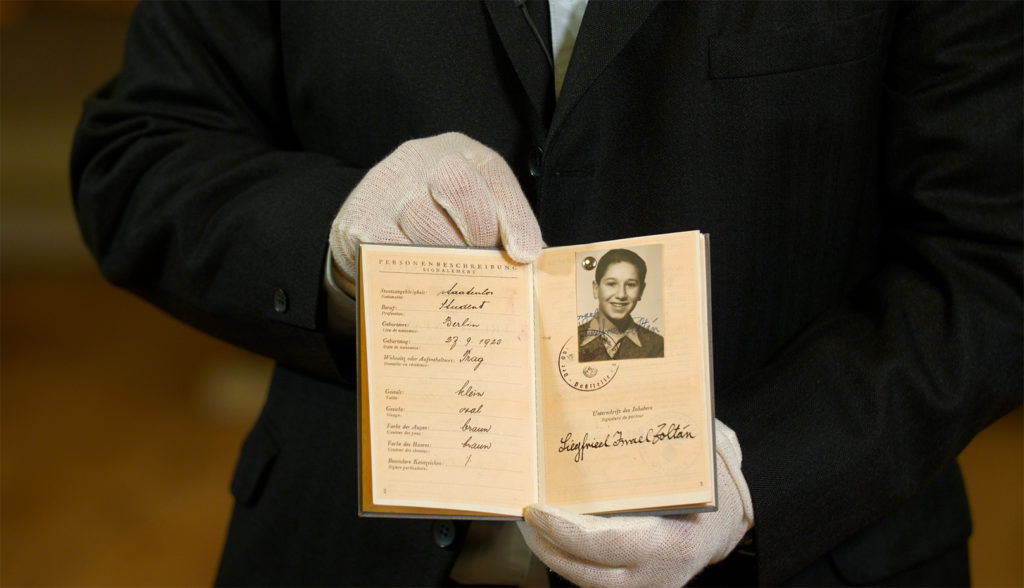 PERSONENBESCHREIBUNG
SIGNALEMENT
Staatsangehörigkeit: staatenlos
Nationalité
Beruf: Student
Profession
Geburtsort: Berlin
Lieu de naissance
Geburtstag: 27. 9. 1920
Date de naissance
Wohnsitz oder Aufenthaltsort: Prag
Domicile ou résidence
Gestalt: klein
Taille
Gesicht: oval
Visage
Farbe der Augen: braun
Couleur des yeux
Farbe des Haares: braun
Couleur des cheveux
Besondere Kennzeichen: /
Signes particuliers
2
Unterschrift des Inhabers
Signature du porteur
Siegfried Israel Zoltán
3